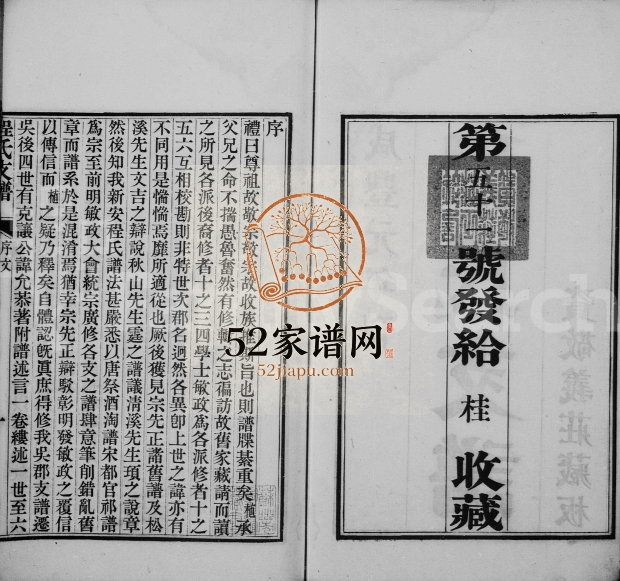 第五十一號發給 桂 收藏
序
禮曰尊祖故敬宗敬宗故收族 旨也則譜牒綦重矣植承
父兄之命不揣愚魯奮然有修輯之志徧訪故舊家藏請而讀
之所見各派後裔修者十之三四學士敏政為各派修者十之
五六互相校勘則非特世次郡名迥然各異卽上世之諱亦有
不同用是惝惝焉靡所適從也厥後獲見宗先正譜舊譜及松
溪先生文吉之辯說秋山先生霆之譜議淸溪先生頊之說章
然後知我新安程氏譜法甚嚴悉以唐祭酒淘譜宋都官祁譜
爲宗至前明敏政大會統宗廣修各支之譜肆意筆削錯亂舊
章而譜系於是混淆焉猶幸宗先正辯駁彰明發敏政之覆信
以傳信而植之疑乃釋矣自體認旣眞庶得修我吳郡支譜遷
吳後四世有克讓公諱允恭著附譜述言一卷縷述一世至六
程氏支譜
序文
一
52家谱网
52jiapu.com